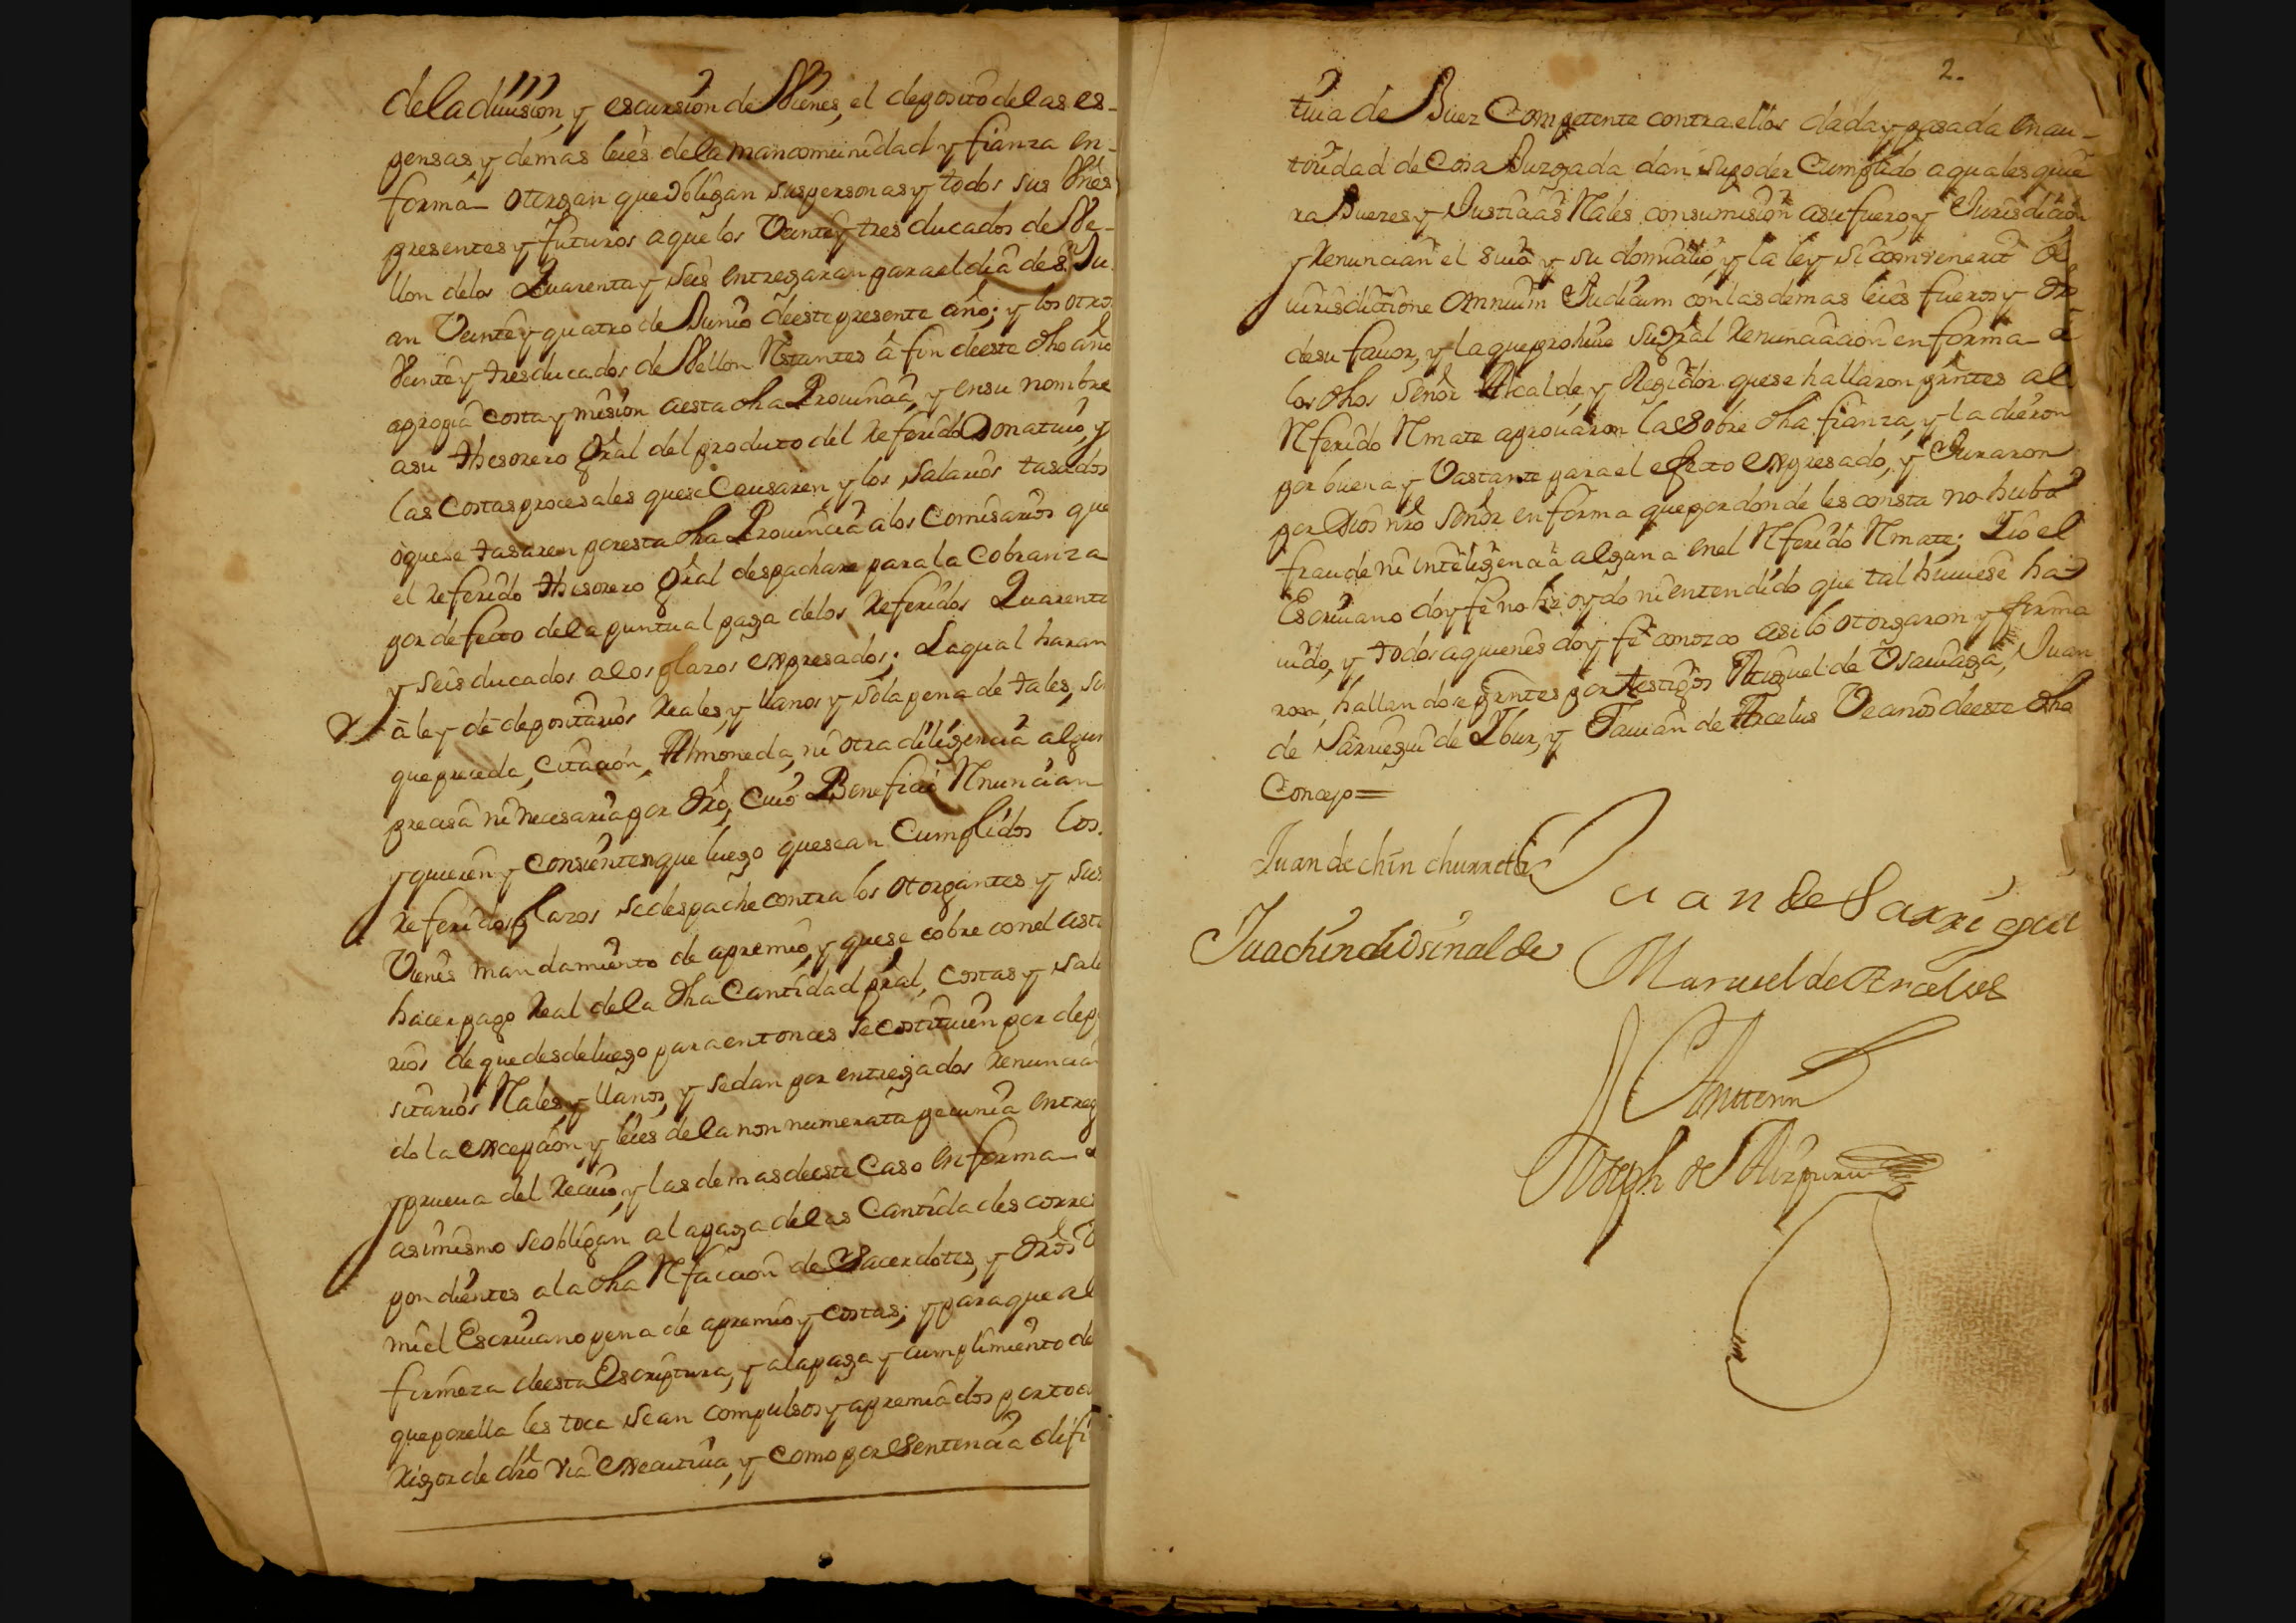 dela diuision, y escursion de Vienes, el deposito delas es-
pensas y demas leies dela mancomunidad y fianza en-
forma- otorgan que obligan sus personas y todos sus Vnes
presentes y futuros aque los Veinte y tres ducados de Ve-
llon delos Quarenta y seis entregaran para el dia de Sn Ju
an Veinte y quatro de Junio deeste presente año; y los otros
Veinte y tres ducados de Vellon Rstantes â fin deeste dho año
apropia costa y mision aesta dha Prouincia, y ensu nombre
asu thesorero Gral del produto del Referido Donatiuo, y
las Costas procesales quese Causaren, y los Salarios tasados
òquese tasaren poresta dha Prouincia alos Comisarios que
el Referido thesorero Gral despachare para la Cobranza
por defecto dela puntual paga delos Referidos Quarenta
y seis ducados alos plazos expresados; Laqual haran
â ley de depositarios Reales, y llanos y sola pena de tales, sin
que preceda, Citacion, Almoneda, ni otra diligencia algun
precisa ni necesaria por dro, Cuio Beneficio Rnuncian
y quieren y Consienten que luego quesean Cumplidos los
Referidos plazos sedespache contra los otorgantes y sus
Vienes mandamiento de apremio, y quese cobre con el asta
hacer pago Real dela dha Cantidad pral, costas y sala
rios de que desde luego para entonces se constituien por depo
sitarios Rales, y llanos, y sedan por entregados Renuncian
do la excepcion, y leies dela non numerata pecunia entreg
y prueua del Reciuo, y las demas deeste Caso en forma-
asimesmo seobligan ala paga delas Cantidades corres
pondientes ala dha Rfaccion de Sacerdotes, y dros D
miel Escriuano pena de apremio y costas; y para que al
firmeza deesta Escriptura, y ala paga y cumplimiento de
que por ella les toca sean compulsos y apremiados por todo
Rigor de dro via executiua, y como por Sentencia difi
2.
tiua de Juez Competente contra ellos dada y pasada en au-
toridad de Cosa Juzgada dan su poder Cumplido a qualesquie
ra Jueces y Justicias Rales, con sumision asu fuero, y Jurisdicion
y Renuncian el suio y su domicilio, y la ley si conuenerit de
iurisdictione omnium Judicum con las demas leies fueros y dros
desu fauor, y la que prohiue su gral Renunciacion en forma- e
los dhos Señor Alcalde, y Regidor quese hallaron prntes al
Rferido Rmate aprouaron la sobre dha fianza, y la dieron
por buena y Vastante para el efecto expresado, y Juraron
por Dios nro Señor en forma que por donde les consta no hubo
fraude ni inteligencia alguna en el Rferido Rmate; Yo el
Escriuano doy fe no he oydo ni entendido que tal huuiese ha-
uido, y todos aquienes doy fe conozco asi lo otorgaron y firma
ron, hallandose prntes por testigos Miguel de Osauiaga, Juan
de Sarriegui de Ybur, y Fauian de Arcelus Vecinos deeste dho
Concejo=
Juan de chin churreta
Juan de Sarriegui
Juachin de Osinalde
Manuel de Arcelus
Anttemi
Joseph de Aizpuru